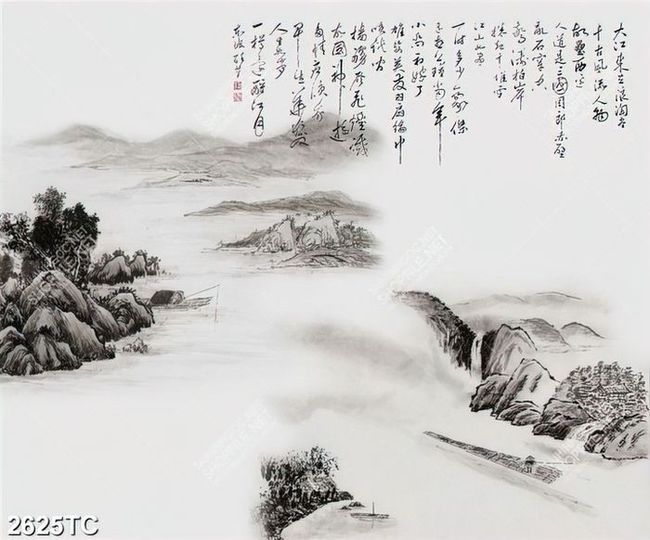 大江東去浪淘盡
千古風流人物
故壘西邊
人道是三國周郎赤壁
亂石穿空
驚濤拍岸
捲起千堆雪
江山如畫
一時多少豪傑
遙想公瑾當年
小喬初嫁了
雄姿英發羽扇綸巾
談笑間
檣櫓灰飛煙滅
故國神遊
多情應笑我
早生華髮
人生如夢
一樽還酹江月
東坡
2625TC